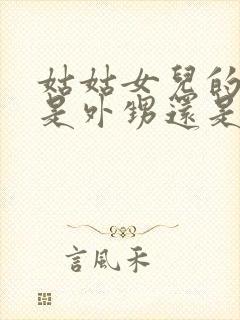 姑姑女兒的
是外甥還是
言風禾